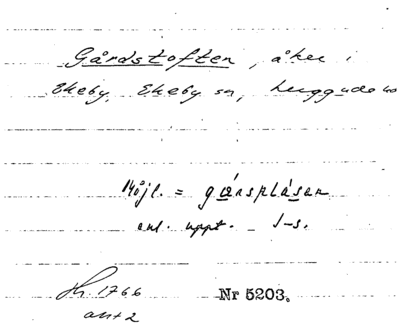 Gårdstoften, åker i
Ekeby, Ekeby sn, Luggude hd
Möjl. = gårsplásen
enl. uppt. I-s.
Hr. 1766
ant 2
Nr 5203.